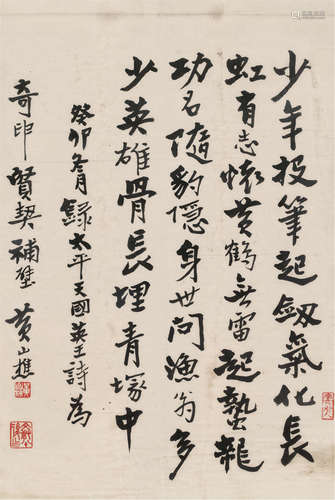 少年投筆起劔氣化長
虹有志懷黃鶴無雷起蟄龍
功名隨豹隱身世問漁翁多
少英雄骨長埋青塚中
癸卯冬月錄太平天國英王詩為
奇印賢契補壁 黃山樵